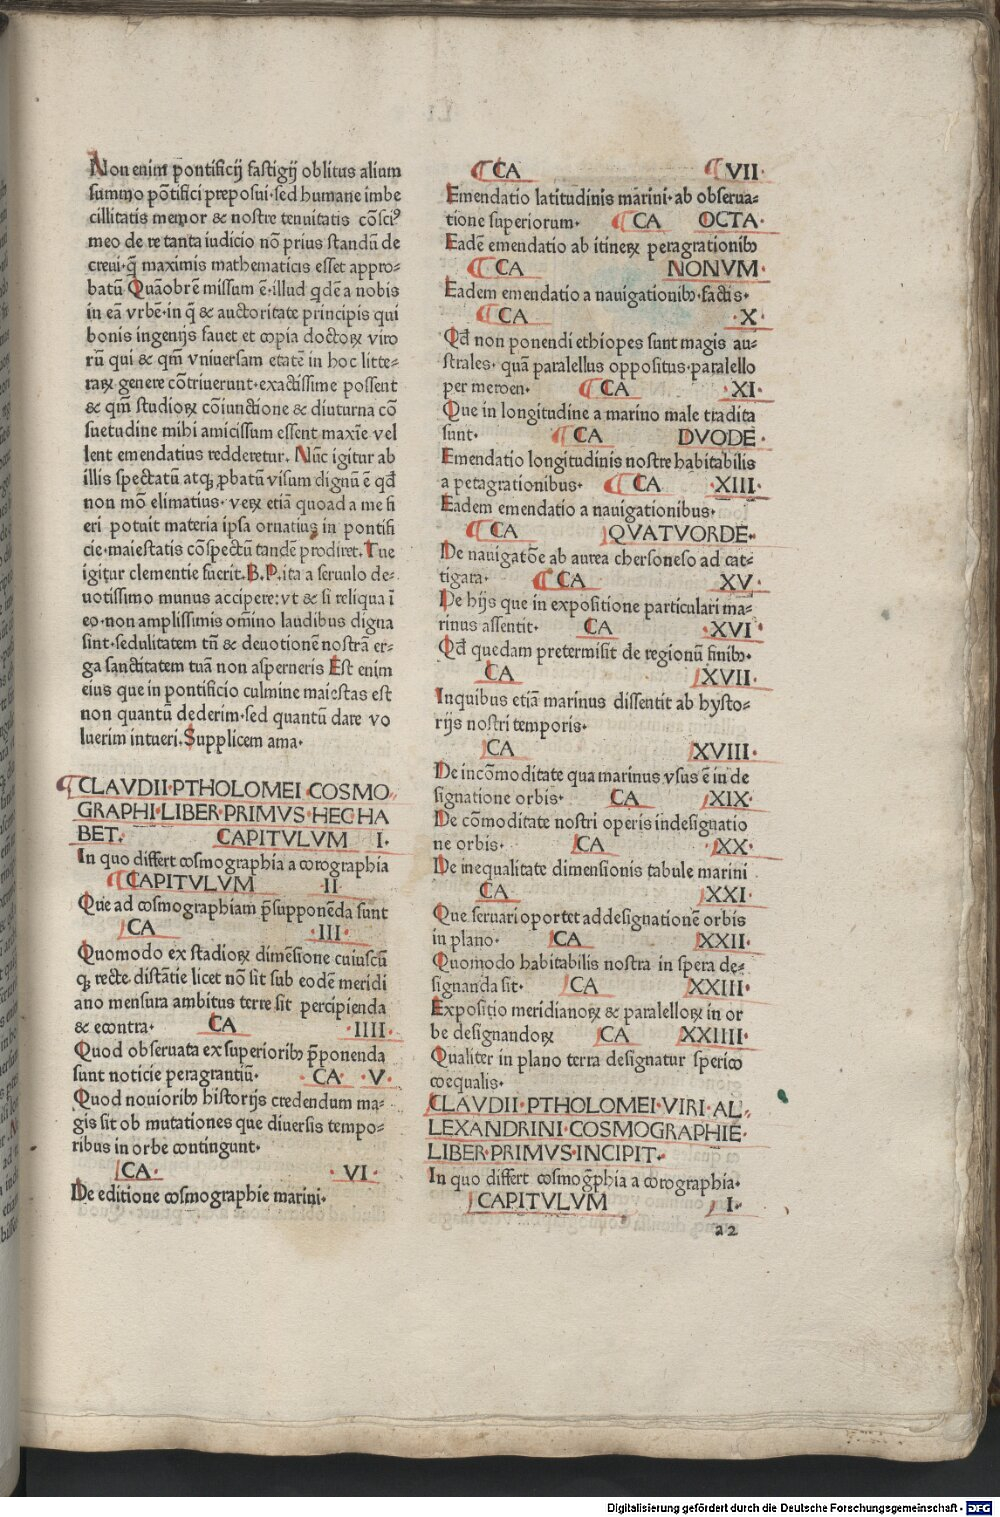 Non enim pontificij fastigij oblitus alium
summo põtifici preposui·sed humane imbe
cillitatis memor & nostre tenuitatis cõsciꝰ
meo de re tanta iudicio nõ prius standũ de
creui·q̃ maximis mathematicis esset appro-
batũ Quãobrẽ missum ẽ·illud qdẽ a nobis
in eã vrbẽ·in q̃ & auctoritate principis qui
bonis ingenijs fauet et copia doctoꝝ viro
rũ qui & qm̃ vniuersam etatẽ in hoc litte-
raꝝ genere cõtriuerunt·exactissime possent
& qm̃ studioꝝ cõiunctione & diuturna cõ
suetudine mihi amicissum essent maxĩe vel
lent emendatius redderetur. Nũc igitur ab
illis spectatũ atqꝫ ꝓbatũ visum dignũ ẽ qđ
non mõ elimatius· veꝝ etiã quoad a me fi
eri potuit materia ipsa ornatius in pontifi
cie·maiestatis cõspectũ tandẽ prodiret. Tue
igitur clementie fuerit.B.P.ita a seruulo de-
uotissimo munus accipere: vt & si reliqua ĩ
eo·non amplissimis om̃ino laudibus digna
sint·sedulitatem tñ & deuotionẽ nostrã er-
ga sanctitatem tuã non asperneris Est enim
eius que in pontificio culmine maiestas est
non quantũ dederim·sed quantũ dare vo
luerim intueri. Supplicem ama·
CLAVDII·PTHOLOMEI COSMO
GRAPHI·LIBER·PRIMVS·HEC HA
BET. CAPITVLVM I.
In quo differt cosmographia a corographia
CAPITVLVM II
Que ad cosmographiam p̃supponẽda sunt
CA ·III·
Quomodo ex stadioꝝ dimẽsione cuiuscũ
qꝫ recte distãtie licet nõ sit sub eodẽ meridi
ano mensura ambitus terre sit percipienda
& econtra· CA ·IIII·
Quod obseruata ex superioribꝫ p̃ponenda
sunt noticie peragrantiũ· ·CA· ·V·
Quod nouioribꝫ historijs credendum ma-
gis sit ob mutationes que diuersis tempo-
ribus in orbe contingunt·
CA· ·VI·
De editione cosmographie marini·
CA VII·
Emendatio latitudinis marini·ab obserua-
tione superiorum· CA OCTA·
Eadẽ emendatio ab itineꝝ peragrationibꝫ
CA NONVM·
Eadem emendatio a nauigationibꝫ·factis·
CA ·X·
Qđ non ponendi ethiopes sunt magis au-
strales· quã paralellus oppositus·paralello
per meroen· CA ·XI·
Que in longitudine a marino male tradita
sunt· CA DVODE·
Emendatio longitudinis nostre habitabilis
a peragrationibus· CA ·XIII·
Eadem emendatio a nauigationibus·
CA QVATVORDE·
De nauigatõe ab aurea chersoneso ad cat-
tigara· CA XV·
De hijs que in expositione particulari ma-
rinus assentit· CA ·XVI·
Qđ quedam pretermisit de regionũ finibꝫ·
CA XVII·
Inquibus etiã marinus dissentit ab hysto-
rijs nostri temporis·
CA XVIII·
De incõmoditate qua marinus vsus ẽ in de
signatione orbis· CA XIX·
De cõmoditate nostri operis indesignatio
ne orbis· CA XX·
De inequalitate dimensionis tabule marini
CA XXI·
Que seruari oportet ad designationẽ orbis
in plano· CA XXII·
Quomodo habitabilis nostra in spera de-
signanda sit· CA XXIII·
Expositio meridianoꝝ & paralelloꝝ in or
be designandoꝝ CA XXIIII·
Qualiter in plano terra designatur sperico
coequalis·
CLAVDII·PTHOLOMEI·VIRI·AL-
LEXANDRINI·COSMOGRAPHIE·
LIBER·PRIMVS·INCIPIT·
In quo differt cosmog̃phia a corographia·
CAPITVLVM I·
a2
Digitalisierung gefördert durch die Deutsche Forschungsgemeinschaft - DFG